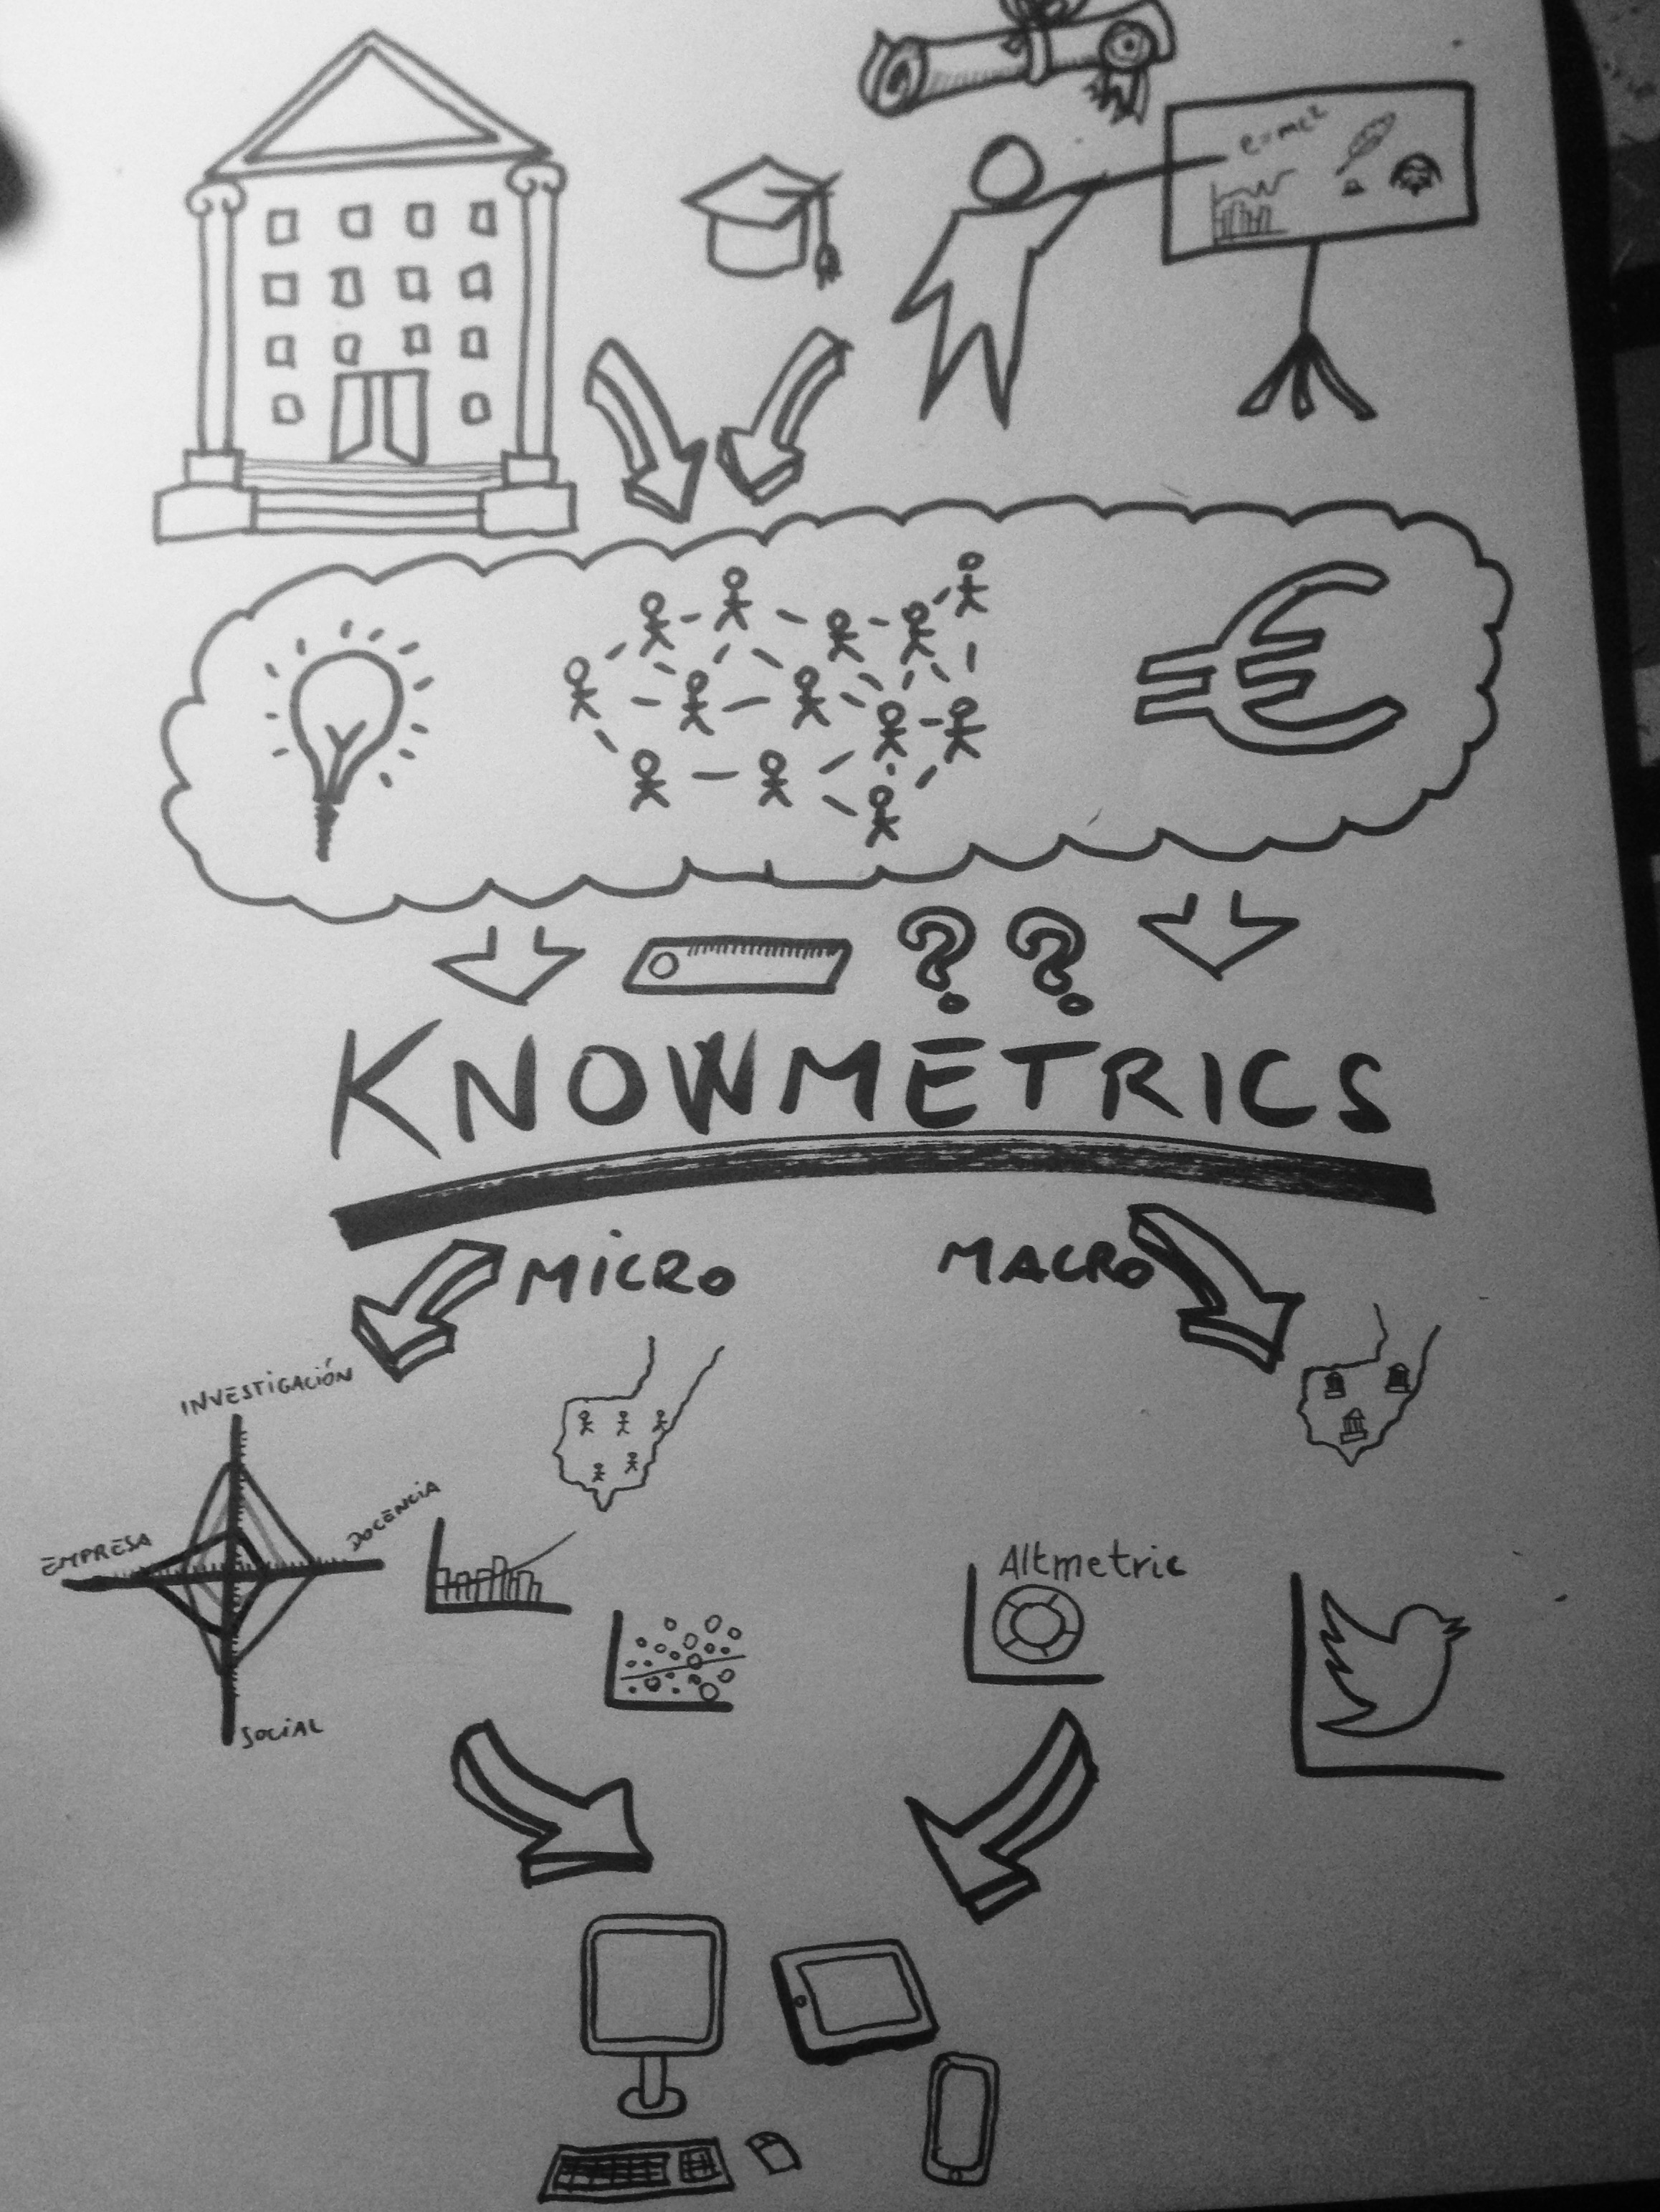 e=mc²
€
? ?
KNOWMETRICS
MiCRO
MACRO
INVESTiGACIÓN
EMPRESA
DOCENCiA
SOCiAL
Altmetric